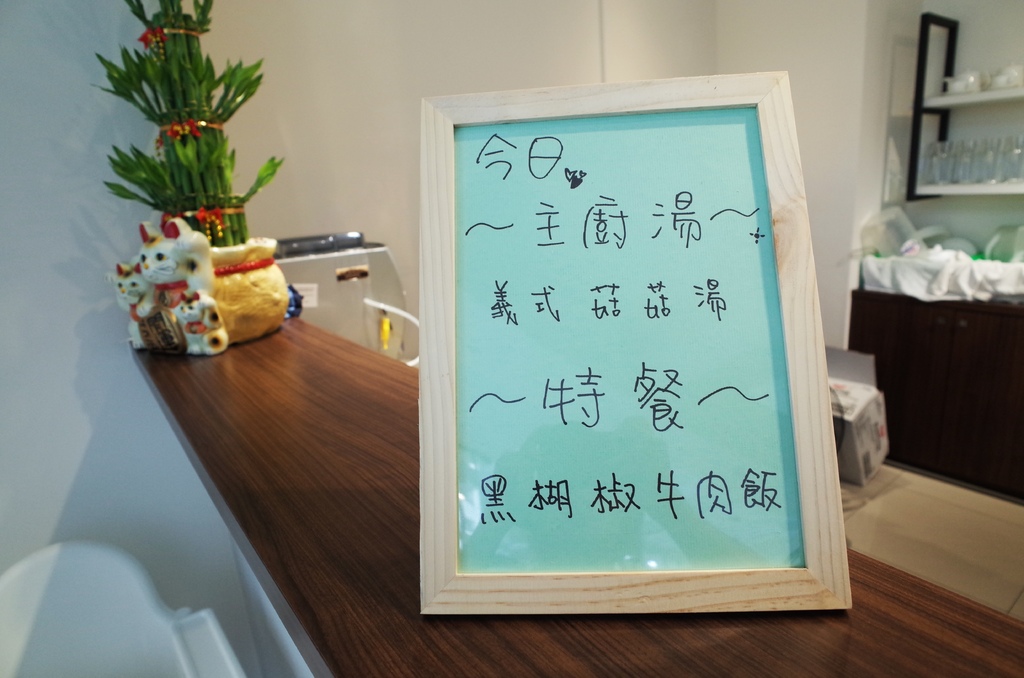 今日
～主廚湯～
義式菇菇湯
～特餐～
黑楜椒牛肉飯